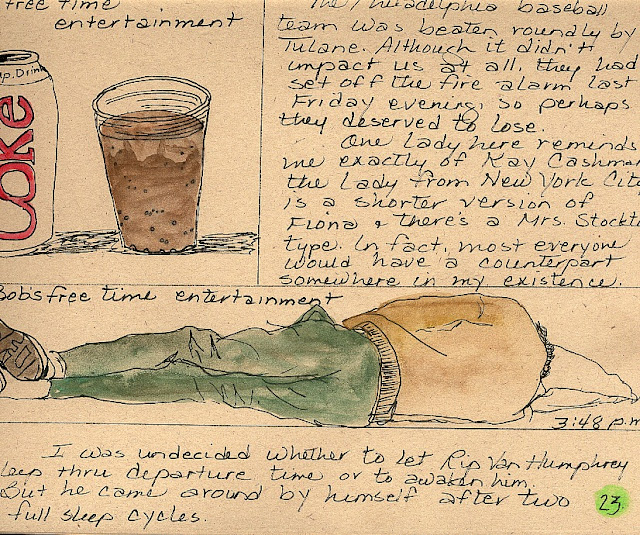 free time
entertainment
Drink
Coke
The Philadelphia baseball
team was beaten roundly by
Tulane. Although it didn't
impact us at all, they had
set off the fire alarm last
Friday evening, so perhaps
they deserved to lose.
One lady here reminds
me exactly of Kay Cashman
the lady from New York City
is a shorter version of
Fiona & there's a Mrs. Stockto
type. In fact, most everyone
would have a counterpart
somewhere in my existence.
Bob's free time entertainment
3:48 p.m
I was undecided whether to let Rip Van Humphrey
leep thru departure time or to awaken him.
But he came around by himself after two
full sleep cycles.
23.